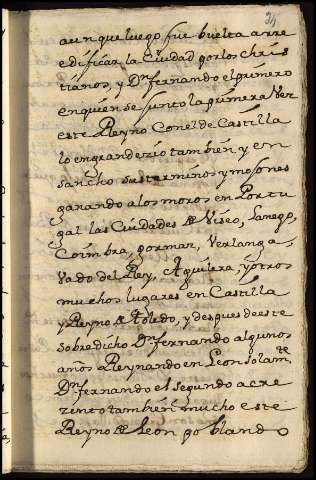 34
aunque luego fue buelta a rre
edificar la Ciudad por los chris
tianos, y Dn. fernando el primero
en quien se junto la primera vez
este Reyno Con el de Castilla
lo engrandezio tambien y en
sancho sus terminos y mojones
ganando a los moros en Portu
gal las Ciudades de Viseo, Lamego,
Coimbra, gormar, Verlanga,
Vado del Rey, Aguilera, y otros
muchos lugares en Castilla
y Reyno de Toledo, y despues de este
sobre dicho Dn. fernando algunos
años Reynando en Leon solamte.
Dn. fernando el segundo acre
zento tambien mucho este
Reyno de Leon poblando